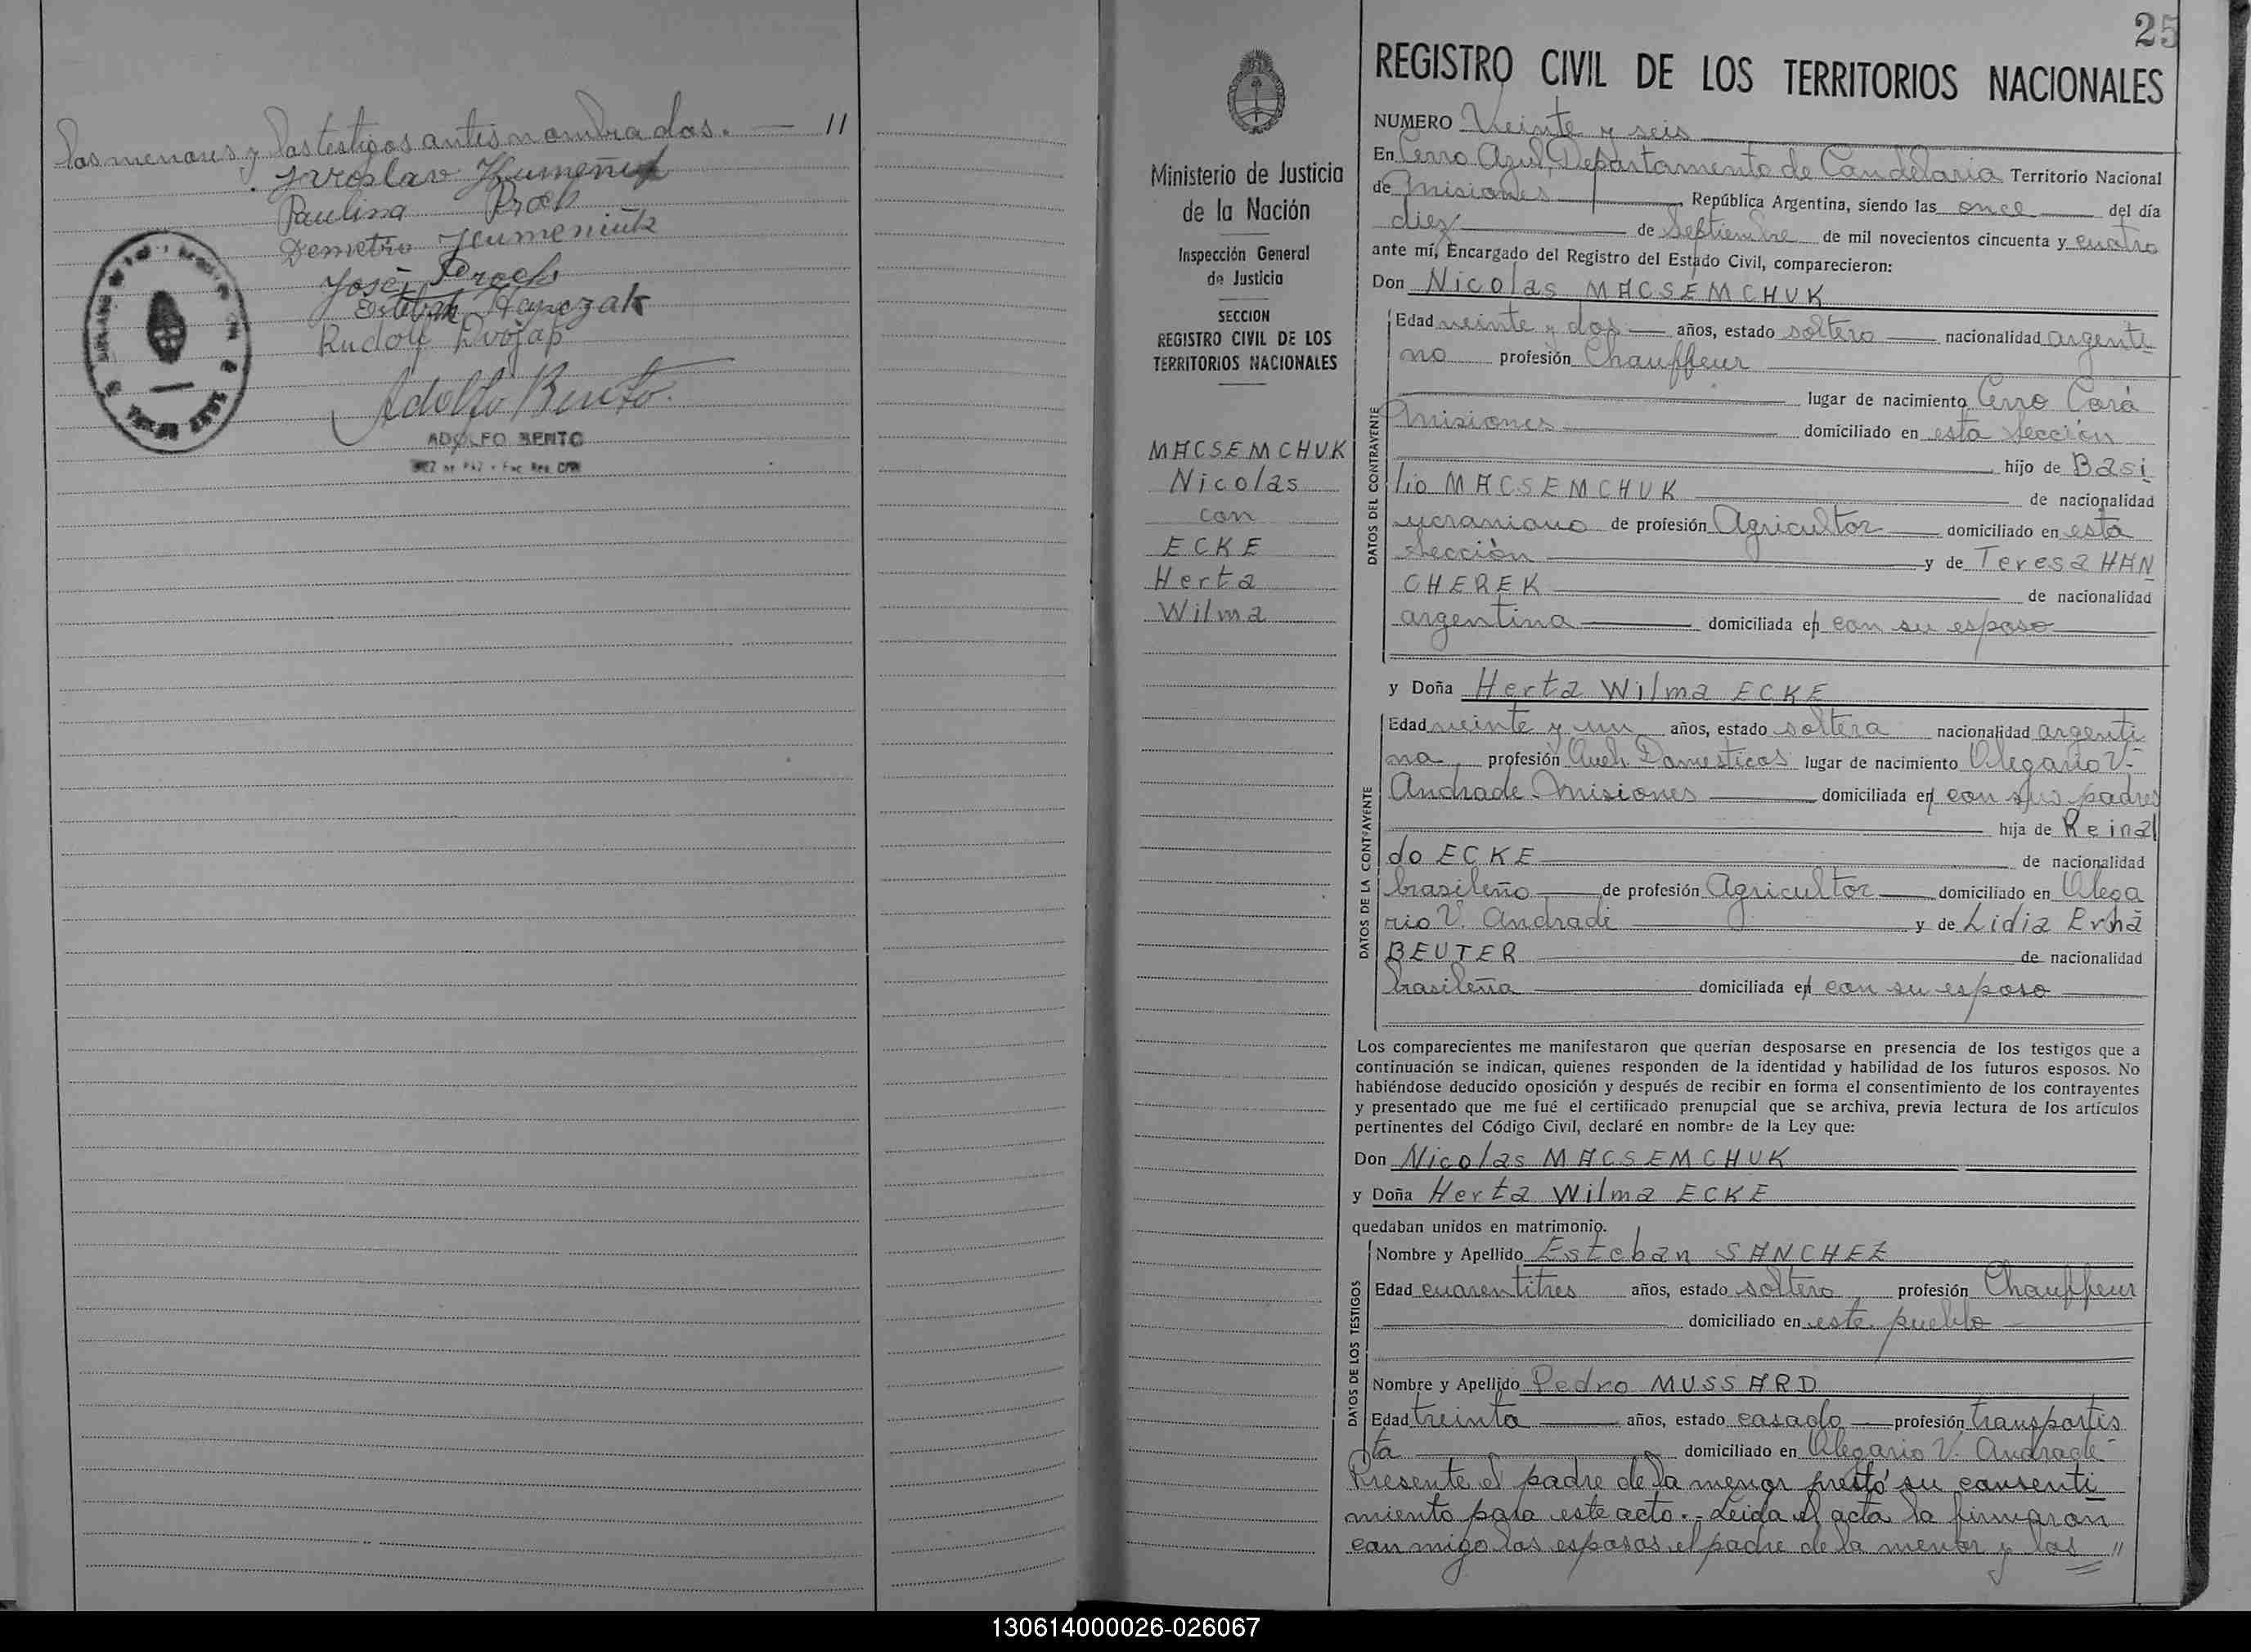 los menores y los testigos antes nombrados. — //
Paulina Proch
Demetrio Humeniuk
José Proch
Rudolf
Adolfo Bento
ADOLFO BENTO
25
REGISTRO CIVIL DE LOS TERRITORIOS NACIONALES
Ministerio de Justicia
de la Nación
Inspección General
de Justicia
SECCION
REGISTRO CIVIL DE LOS
TERRITORIOS NACIONALES
MACSEMCHUK
Nicolas
con
ECKE
Herta
Wilma
NUMERO Veinte y seis
En Cerro Azul, Departamento de Candelaria Territorio Nacional
de Misiones, República Argentina, siendo las once del día
diez de Septiembre de mil novecientos cincuenta y cuatro
ante mí, Encargado del Registro del Estado Civil, comparecieron:
Don Nicolas MACSEMCHUK
DATOS DEL CONTRAYENTE
Edad veinte y dos años, estado soltero nacionalidad argenti
no profesión Chauffeur
lugar de nacimiento Cerro Corá
Misiones domiciliado en esta sección
hijo de Basi
lio MACSEMCHUK de nacionalidad
ucraniano de profesión Agricultor domiciliado en esta
sección y de Teresa HAN
CHEREK de nacionalidad
argentina domiciliada en con su esposo
y Doña Herta Wilma ECKE
DATOS DE LA CONTRAYENTE
Edad veinte y un años, estado soltera nacionalidad argenti
na profesión Queh. Domesticos lugar de nacimiento Olegario V.
Andrade Misiones domiciliada en con sus padres
hija de Reinal
do ECKE de nacionalidad
brasileño de profesión Agricultor domiciliado en Olega
rio V. Andrade y de Lidia Erna
BEUTER de nacionalidad
brasileña domiciliada en con su esposo
Los comparecientes me manifestaron que querían desposarse en presencia de los testigos que a
continuación se indican, quienes responden de la identidad y habilidad de los futuros esposos. No
habiéndose deducido oposición y después de recibir en forma el consentimiento de los contrayentes
y presentado que me fué el certificado prenupcial que se archiva, previa lectura de los artículos
pertinentes del Código Civil, declaré en nombre de la Ley que:
Don Nicolas MACSEMCHUK
y Doña Herta Wilma ECKE
quedaban unidos en matrimonio.
DATOS DE LOS TESTIGOS
Nombre y Apellido Esteban SANCHEZ
Edad cuarentitres años, estado soltero profesión Chauffeur
domiciliado en este pueblo
Nombre y Apellido Pedro MUSSARD
Edad treinta años, estado casado profesión transportis
ta domiciliado en Olegario V. Andrade
Presente el padre de la menor prestó su consenti
miento para este acto.- Leida el acta la firmaron
con migo los esposos el padre de la menor y los //
130614000026-026067